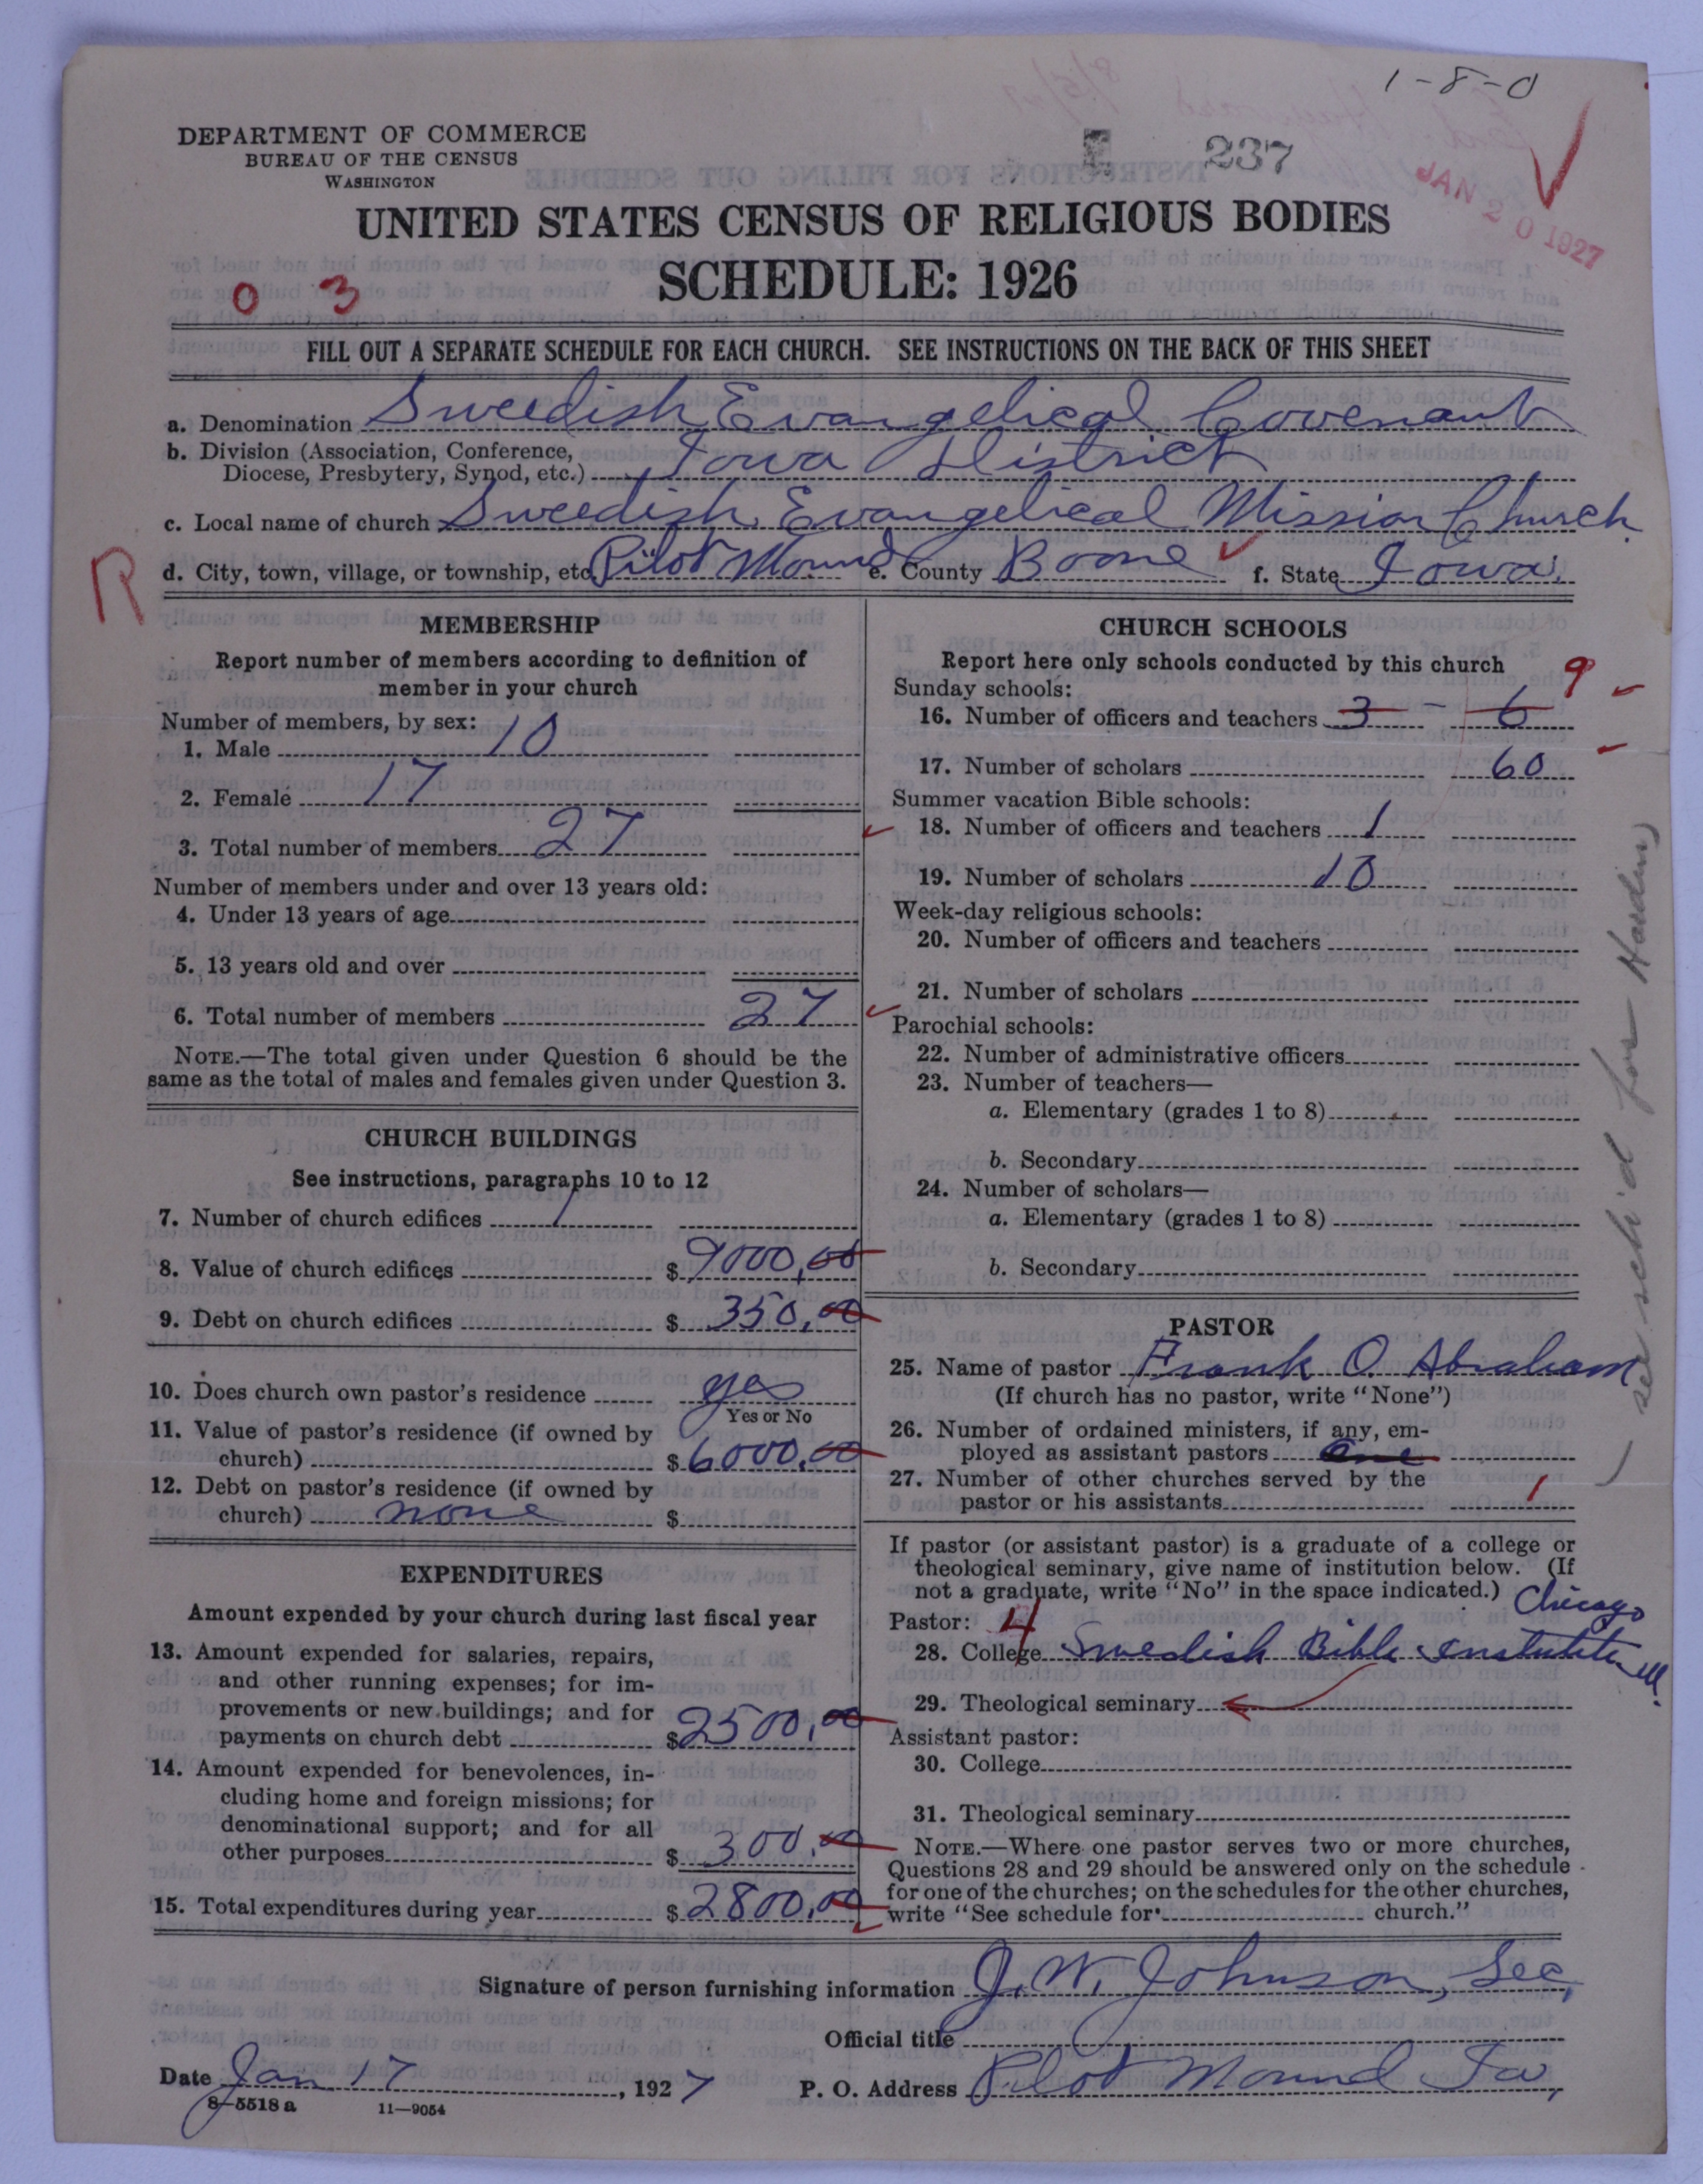 1-8-0
DEPARTMENT OF COMMERCE
BUREAU OF THE CENSUS
WASHINGTON
237
JAN 20 1927
UNITED STATES CENSUS OF RELIGIOUS BODIES
SCHEDULE: 1926
0 3
FILL OUT A SEPARATE SCHEDULE FOR EACH CHURCH. SEE INSTRUCTIONS ON THE BACK OF THIS SHEET
a. Denomination Swedish Evangelical Covenant
b. Division (Association, Conference,
Diocese, Presbytery, Synod, etc.) Iowa District
c. Local name of church Swedish Evangelical Mission Church
R
d. City, town, village, or township, etc. Pilot Mound e. County Boone f. State Iowa.
MEMBERSHIP
Report number of members according to definition of
member in your church
Number of members, by sex:
1. Male 10
2. Female 17
3. Total number of members 27
Number of members under and over 13 years old:
4. Under 13 years of age
5. 13 years old and over
6. Total number of members 27
NOTE.—The total given under Question 6 should be the
same as the total of males and females given under Question 3.
CHURCH BUILDINGS
See instructions, paragraphs 10 to 12
7. Number of church edifices 1
8. Value of church edifices $ 9000,00
9. Debt on church edifices $ 350,00
10. Does church own pastor's residence yes
Yes or No
11. Value of pastor's residence (if owned by
church) $ 6000.00
12. Debt on pastor's residence (if owned by
church) none $
EXPENDITURES
Amount expended by your church during last fiscal year
13. Amount expended for salaries, repairs,
and other running expenses; for im-
provements or new buildings; and for
payments on church debt $ 2500,00
14. Amount expended for benevolences, in-
cluding home and foreign missions; for
denominational support; and for all
other purposes $ 300.00
15. Total expenditures during year $ 2800,00
CHURCH SCHOOLS
Report here only schools conducted by this church
Sunday schools: 9
16. Number of officers and teachers 3 - 6
17. Number of scholars 60
Summer vacation Bible schools:
18. Number of officers and teachers 1
19. Number of scholars 10
Week-day religious schools:
20. Number of officers and teachers
21. Number of scholars
Parochial schools:
22. Number of administrative officers
23. Number of teachers—
a. Elementary (grades 1 to 8)
b. Secondary
24. Number of scholars—
a. Elementary (grades 1 to 8)
b. Secondary
PASTOR
25. Name of pastor Frank O. Abraham
(If church has no pastor, write "None")
26. Number of ordained ministers, if any, em-
ployed as assistant pastors one
27. Number of other churches served by the
pastor or his assistants 1
If pastor (or assistant pastor) is a graduate of a college or
theological seminary, give name of institution below. (If
not a graduate, write "No" in the space indicated.) Chicago
Pastor: 4
28. College Swedish Bible institute Ill.
29. Theological seminary
Assistant pastor:
30. College
31. Theological seminary
NOTE.—Where one pastor serves two or more churches,
Questions 28 and 29 should be answered only on the schedule
for one of the churches; on the schedules for the other churches,
write "See schedule for church."
see sch'd for Hardin
Signature of person furnishing information J. W. Johnson, Sec,
Official title
Date Jan 17, 1927
P. O. Address Pilot Mound Ia,
8—5518a 11—9054